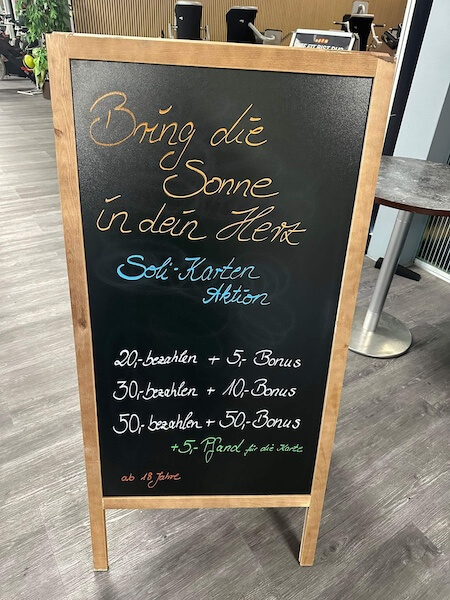 Bring die
Sonne
in dein Herz
Soli-Karten
Aktion
20,-bezahlen + 5,- Bonus
30,-bezahlen + 10,-Bonus
50,-bezahlen + 50,-Bonus
+5,- Pfand für die Karte
ab 18 Jahre